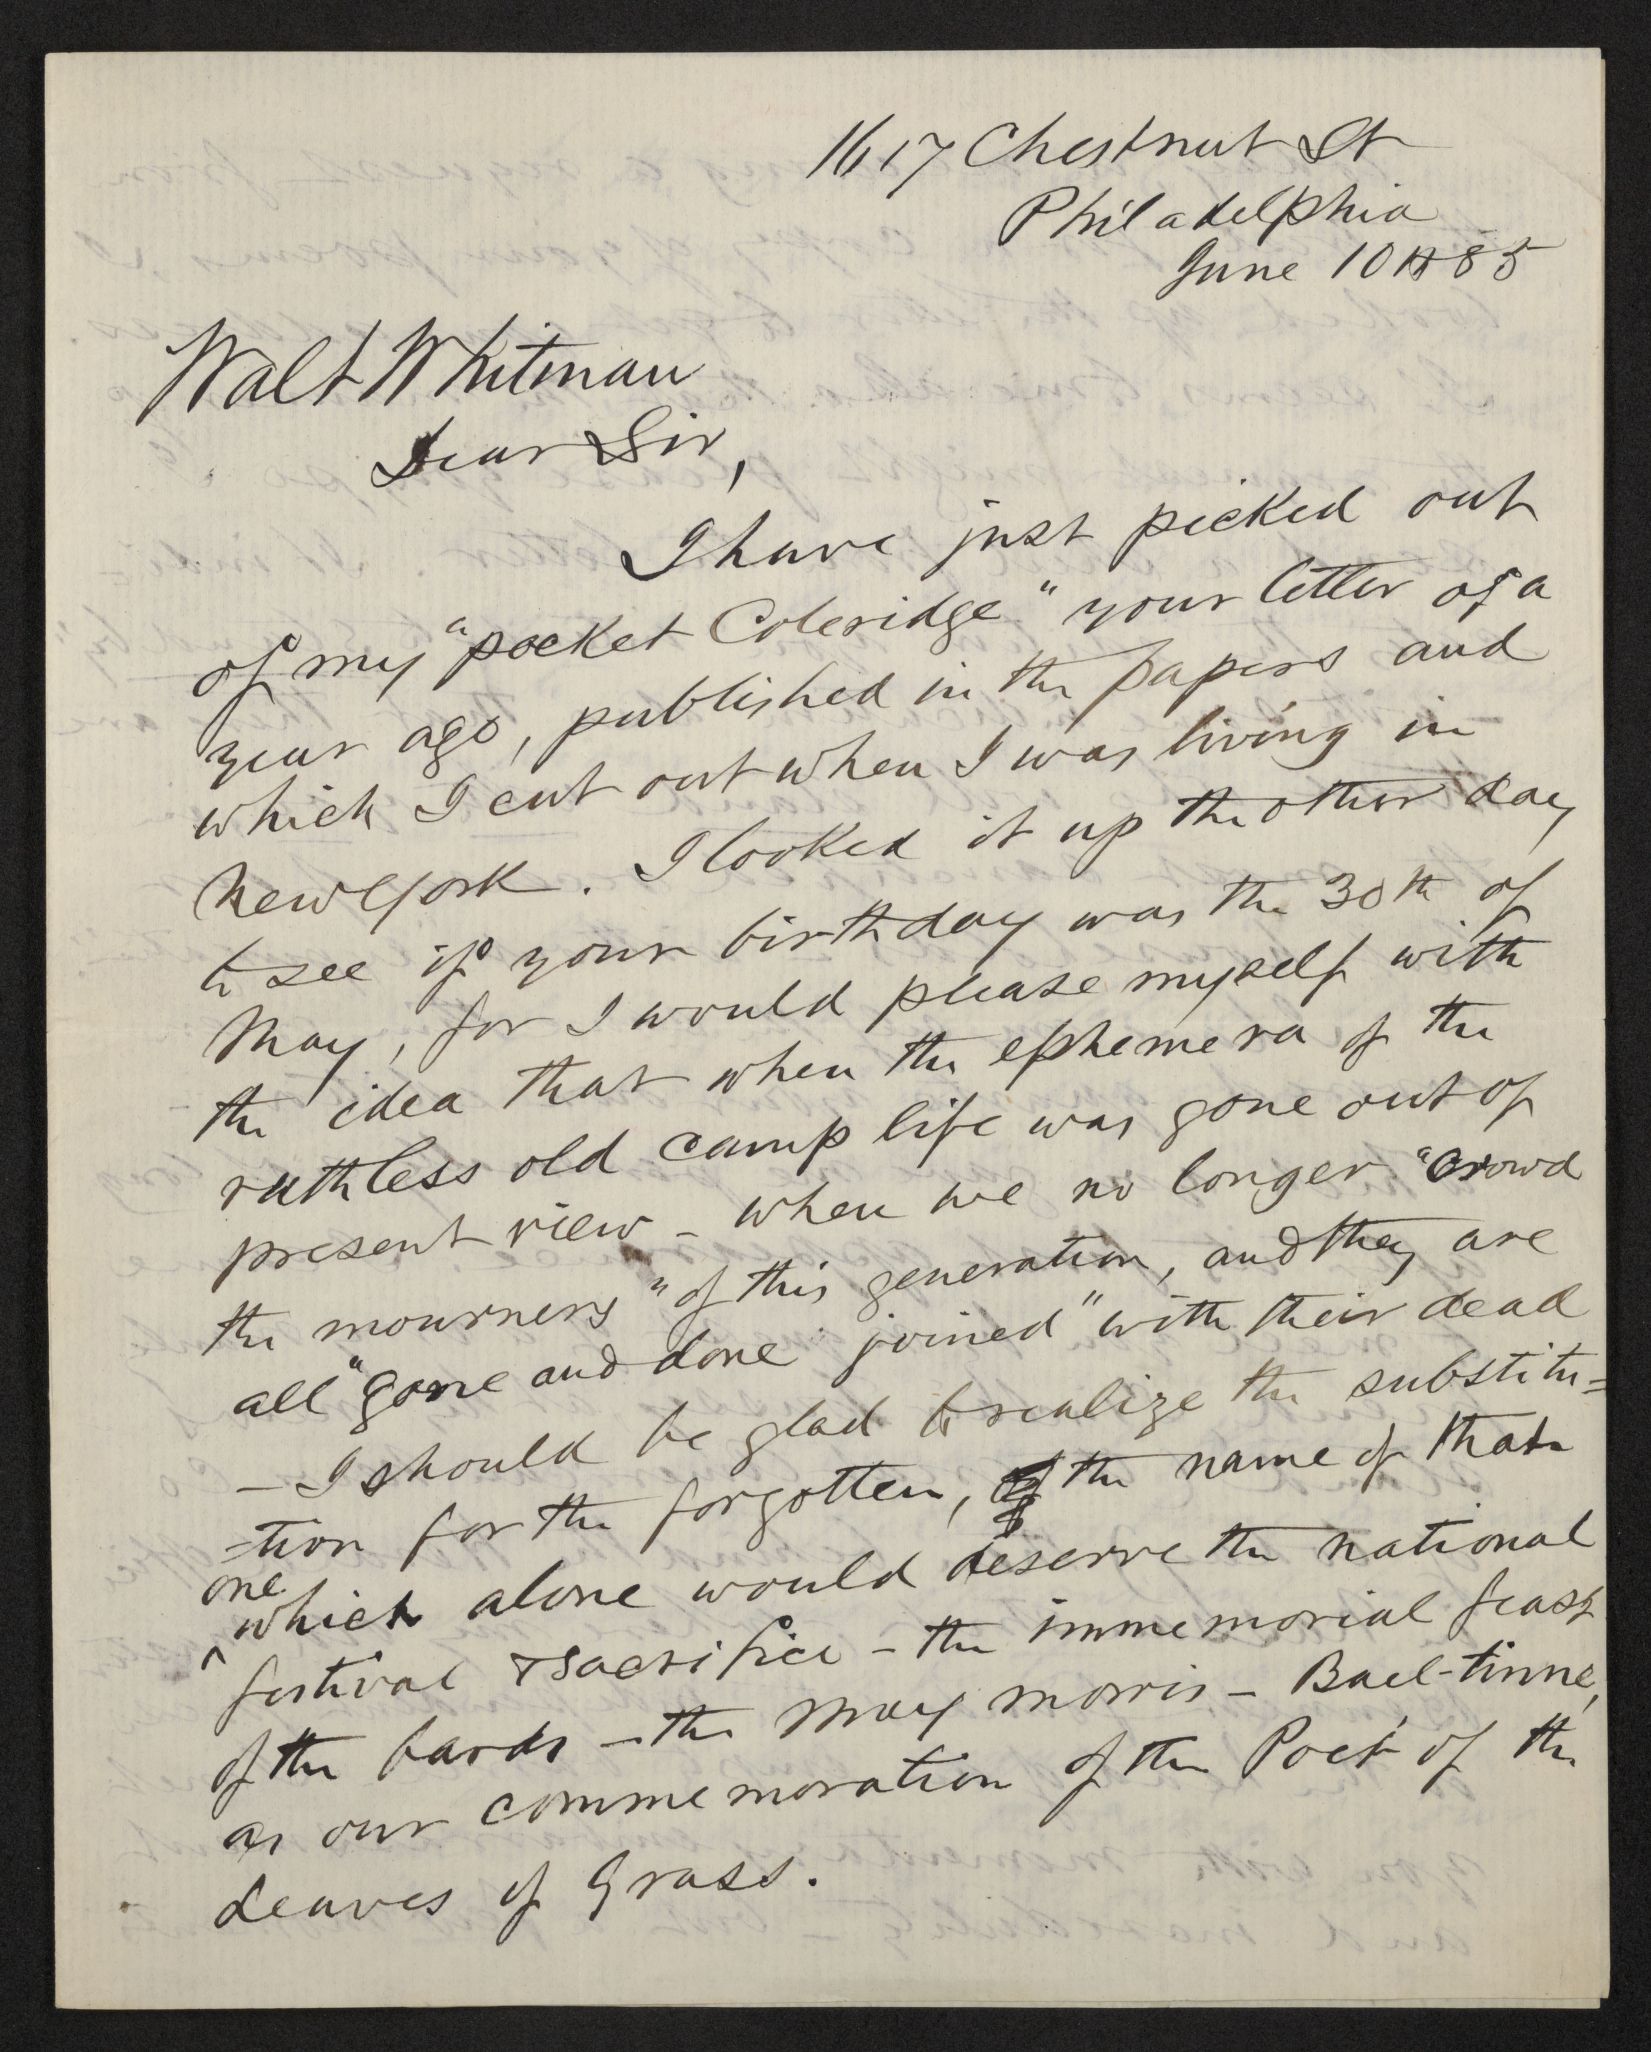 1617 Chestnut St
Philadelphia
June 10th 85
Walt Whitman
Dear Sir,
I have just picked out
of my "pocket Coleridge" your letter of a
year ago, published in the papers and
which I cut out when I was living in
New York. I looked it up the other day
to see if your birthday was the 30th of
May, for I would please myself with
the idea that when the ephemera of the
ruthless old camp life was gone out of
present view - when we no longer "crowd
the mourners" of this generation, and they are
all "gone and done joined" with their dead
- I should be glad to realize the substitu=
=tion for the forgotten, of the name of that
one
which alone would deserve the national
festival & sacrifice - the immemorial feast
of the bards - the May morris - Bael-tinne,
as our commemoration of the Poet of the
Leaves of Grass.